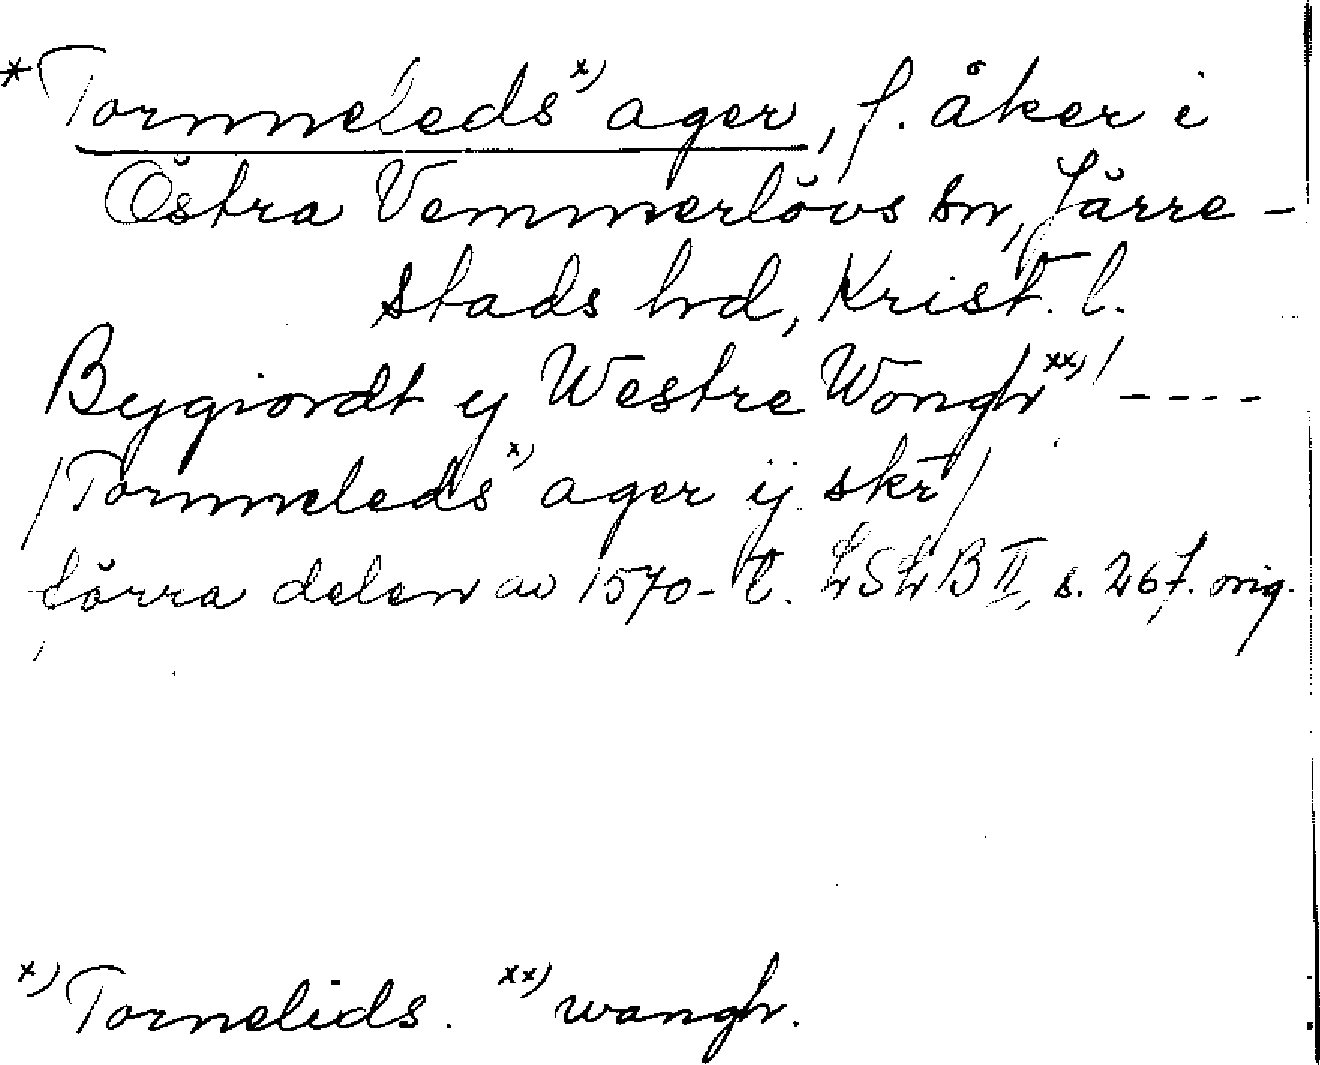 *Tornneleds x) ager, f. åker i
Östra Vemmerlövs sn, Järre-
stads hd, Krist. l.
Bygiordt y Westre Wongh xx) / ----
/Tornneleds x) ager ij skr/
förra delen av 1570-t. LSLB II, s. 267. orig.
x) Tornelids. xx) wangh.